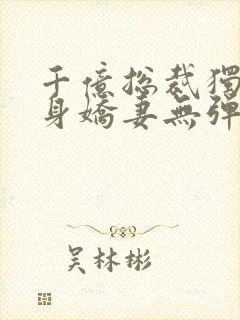 千億總裁獨
身嬌妻無彈
吴林彬